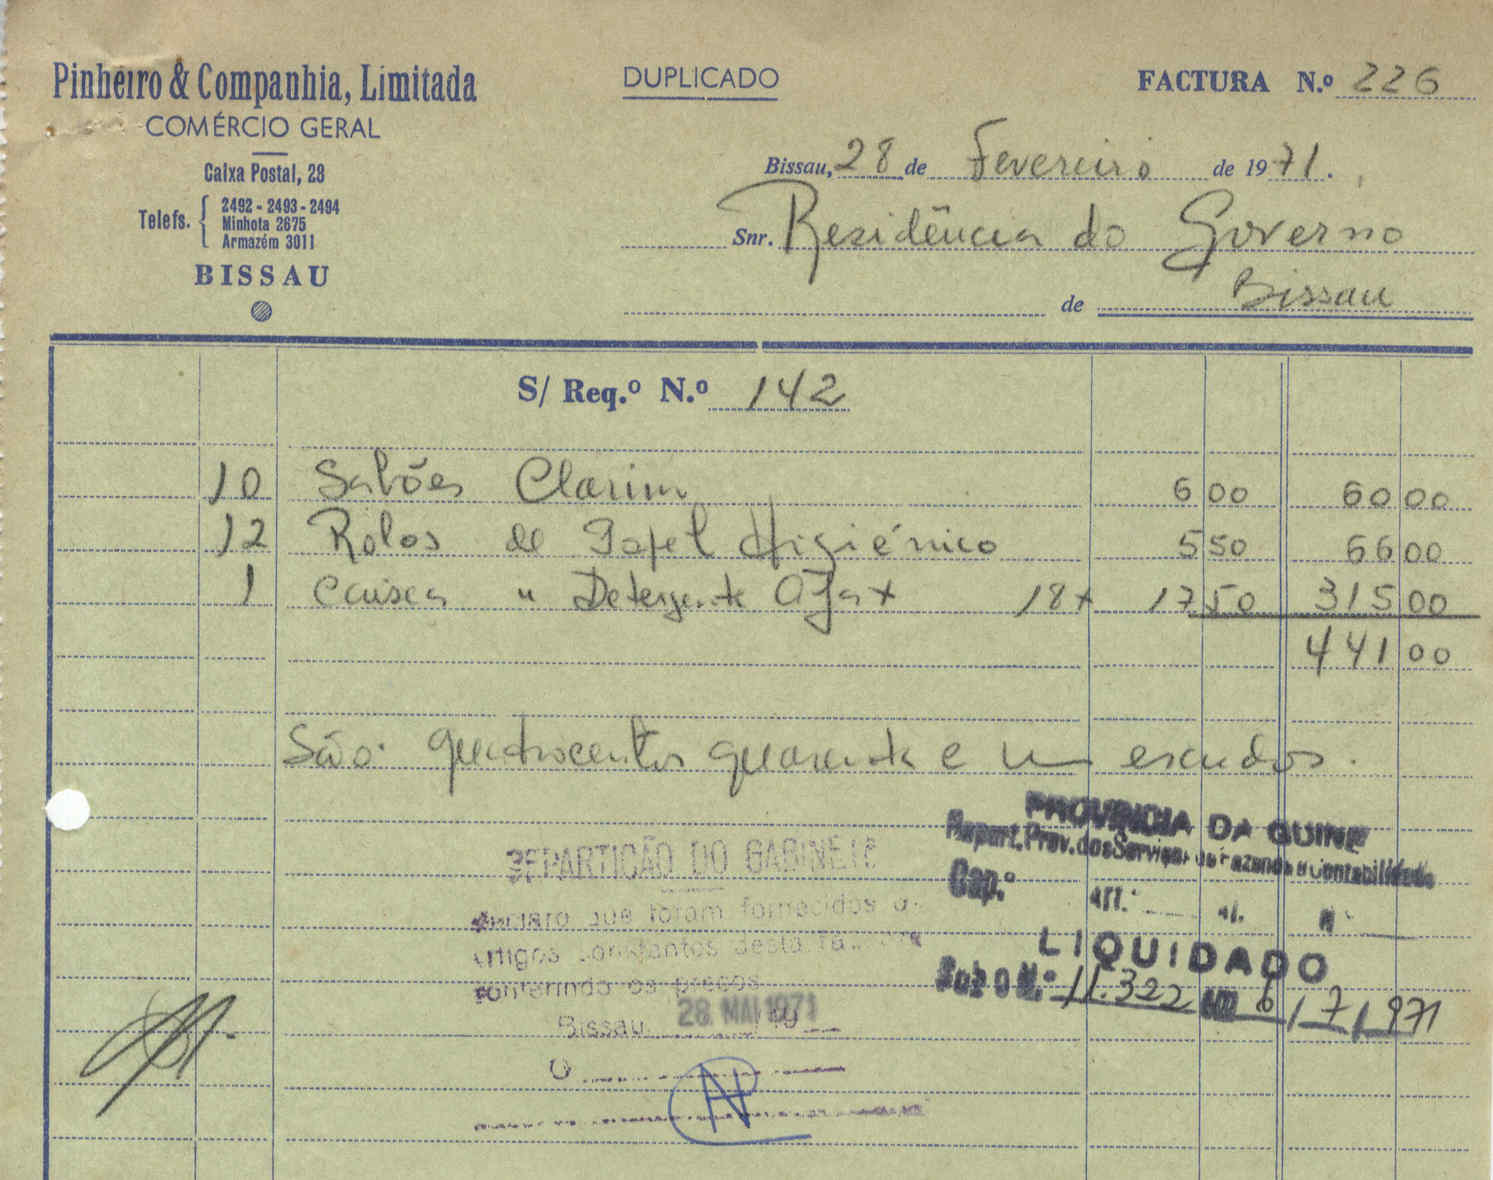 Pinheiro & Companhia, Limitada
COMÉRCIO GERAL
Caixa Postal, 28
Telefs. 2492 - 2493 - 2494
Minhota 2675
Armazém 3011
BISSAU
DUPLICADO
FACTURA N.º 226
Bissau, 28 de Fevereiro de 1971.
Snr. Residência do Governo
de Bissau
S/ Req.º N.º 142
10 Sabões Clarim 6 00 60 00
12 Rolos de Papel Higiénico 5 50 66 00
1 Caixa " Detergente Ajax 18 x 17 50 315 00
441 00
São: quatrocentos quarenta e um escudos.
REPARTIÇÃO DO GABINETE
declaro que foram fornecidos os
artigos constantes desta factura
conferindo os preços
Bissau, 28 MAI 1971
O
PROVINCIA DA GUINE
Repart. Prov. dos Serviços de Fazenda e Contabilidade
Cap.º art.º al. n.º
LIQUIDADO
Sob o N.º 11.322 em 6/7/971